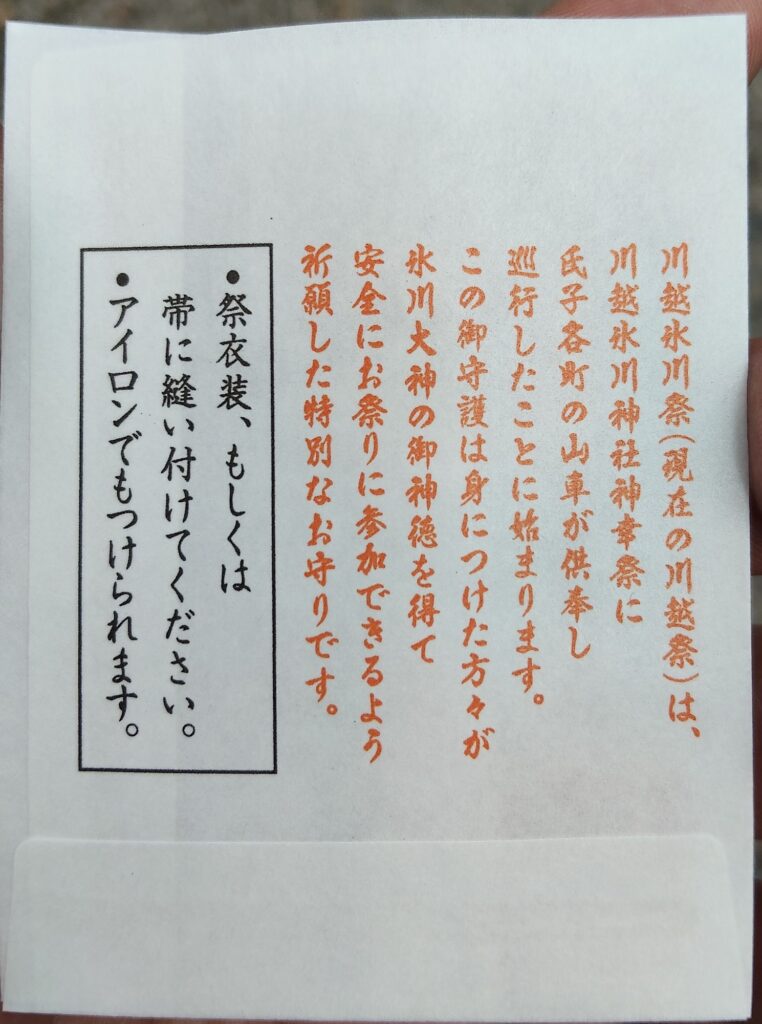 川越氷川祭(現在の川越祭)は、
川越氷川神社神幸祭に
氏子各町の山車が供奉し
巡行したことに始まります。
この御守護は身につけた方々が
氷川大神の御神徳を得て
安全にお祭りに参加できるよう
祈願した特別なお守りです。
●祭衣装、もしくは
帯に縫い付けてください。
●アイロンでもつけられます。